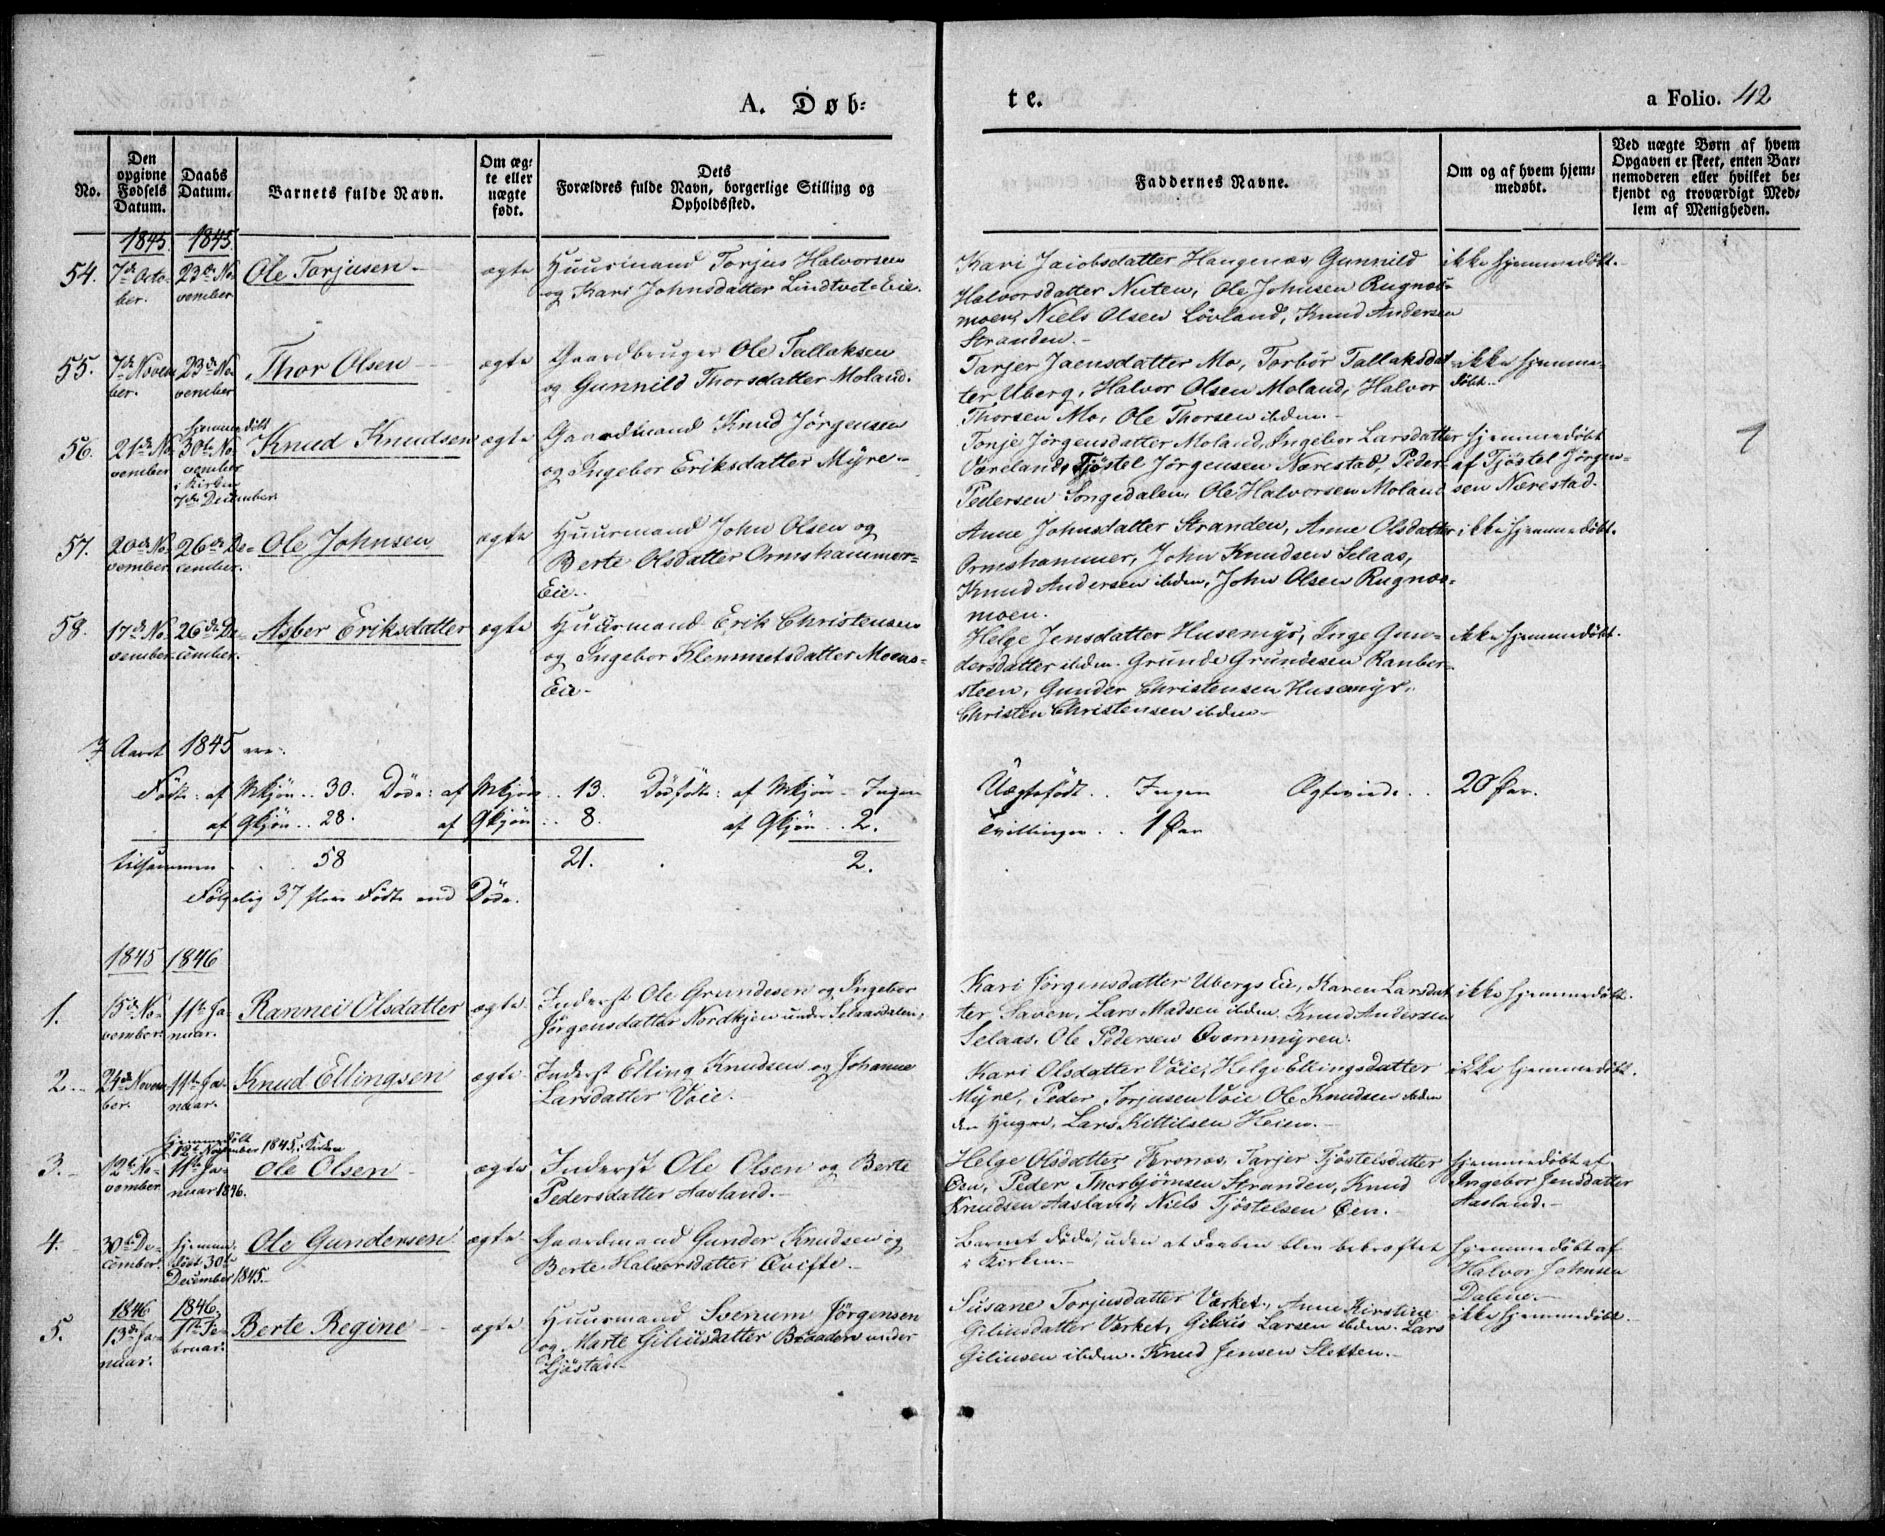 A. Døb=
te.
a Folio. 42
No.
Den
opgivne
Fødsels
Datum.
Daabs
Datum.
Barnets fulde Navn.
Om æg=
te eller
uægte
født.
Dets
Forældres fulde Navn, borgerlige Stilling og
Opholdssted.
Faddernes Navne.
Om og af hvem hjem=
medøbt.
Ved uægte Børn af hvem
Opgaven er skeet, enten Bar=
nemoderen eller hvilket be=
kjendt og troværdigt Med=
lem af Menigheden.
1845. 1845.
54.
7de Octo-
ber.
23de No-
vember
Ole Torjusen
ægte
Huusmand Torjus Halvorsen
og Kari Johnsdatter Lindtvet-Eie.
Kari Jacobsdatter Haugenæs, Gunnild
Halvorsdatter Nuten, Ole Johnsen Rugnæs-
moen, Niels Olsen Løvland, Knud Andersen
Stranden.-
ikke hjemmedøbt.
55.
7de Novem-
ber.
23de No-
vember
Thor Olsen
ægte
Gaardbruger Ole Tallaksen
og Gunnild Thorsdatter Moland.
Tarjer Jaensdatter Mo, Torbør Tallaksdat-
ter Uberg, Halvor Olsen Moland, Halvor
Thorsen Mo, Ole Thorsen ibdm.-
ikke hjemme-
døbt.
56.
21de No-
vember
hjemmedøbt
30te No-
vember
i Kirken
7de December.
Knud Knudsen
ægte
Gaardmand Knud Jørgensen
og Ingebor Eriksdatter Myre-
Tonje Jørgensdatter Moland, Ingebor Larsdatter
Væreland, Tjøstel Jørgensen Nærestad, Peder
Pedersen Songedalen, Ole Halvorsen Moland
hjemmedøbt
af Tjøstel Jørgen-
sen Nærestad.
57.
20de No-
vember
26de De-
cember.
Ole Johnsen
ægte
Huusmand John Olsen og
Berte Olsdatter Ormshammer-
Eie.
Anne Johnsdatter Stranden, Anne Olsdatter
Ormshammer, John Knudsen Selaas,
Knud Andersen ibdem, John Olsen Rugnæs-
moen.
ikke hjemmedøbt.
58.
17de No-
vember
26de De-
cember.
Asber Eriksdatter
ægte
Huusmand Erik Christensen
og Ingebor Klemmetsdatter Moens-
Eie-
Helge Jensdatter Husemyr, Inge Gun-
dersdatter ibdem. Grunde Grundesen Ranber-
steen, Gunder Christensen Husemyr,
Christen Christensen ibdem-
ikke hjemmedøbt.
I Aaret 1845 ere:
Fødte: af Mkjøn.. 30. Døde: af Mkjøn.. 13. Dødfødte: af Mkjøn - Ingen
af Qkjøn.. 28. af Qkjøn.. 8. af Qkjøn.. 2.
tilsammen . . 58 21. 2.
Følgelig 37 flere Fødte end Døde.
Uægtefødt.. Ingen Ægteviede.. 20 Par.
Tvillinger.. 1 Par
1845 1846
1.
15de No-
vember.
11te Ja-
nuar.
Rannei Olsdatter
ægte
Inderst Ole Grundesen og Ingebor
Jørgensdatter Nordkjen under Selaasdalen,
Kari Jørgensdatter Ubergs Eie, Karen Larsdat-
ter Saven, Lars Madsen ibdem. Knud Andersen
Selaas, Ole Pedersen Qvernmyren.
ikke hjemmedøbt.
2.
24de Novem-
ber.
11te Ja-
nuar.
Knud Ellingsen
ægte
Inderst Elling Knudsen og Johanne
Larsdatter Voie.
Kari Olsdatter Voie, Helge Ellingsdatter
Myre, Peder Torjusen Voie Ole Knudsen ibdem
den yngre, Lars Kittilsen Heien.-
ikke hjemmedøbt.
3.
12te No-
vember
hjemmedøbt
12te November 1845, i Kirken
11te Ja-
nuar 1846.
Ole Olsen
ægte
Inderst Ole Olsen og Berte
Pedersdatter Aasland.-
Helge Olsdatter Tronæs, Tarjer Tjøstelsdatter
Øen, Peder Thorbjørnsen Stranden, Knud
Knudsen Aasland, Niels Tjøstelsen Øen.-
hjemmedøbt af
Ingebor Jensdatter
Aasland.-
4.
30te De-
cember.
hjemme-
døbt 30te
December 1845.
Ole Gundersen
ægte
Gaardmand Gunder Knudsen og
Berte Halvorsdatter Tvifte.
Barnet døde, uden at Daaben blev bekræftet
i Kirken.-
hjemmedøbt af
Halvor Johnsen
Dalene.-
5.
1846
13de Ja-
nuar.
1846.
1ste Fe-
bruar.
Berte Regine
ægte
Huusmand Svenum Jørgensen
og Marte Giliusdatter Braaden under
Ljøstad.
Susane Torjusdatter Værket, Anne Kirstine
Giliusdatter Værket, Gilius Larsen ibdem. Lars
Giliusen ibdem. Knud Jensen Sletten.-
ikke hjemmedøbt.